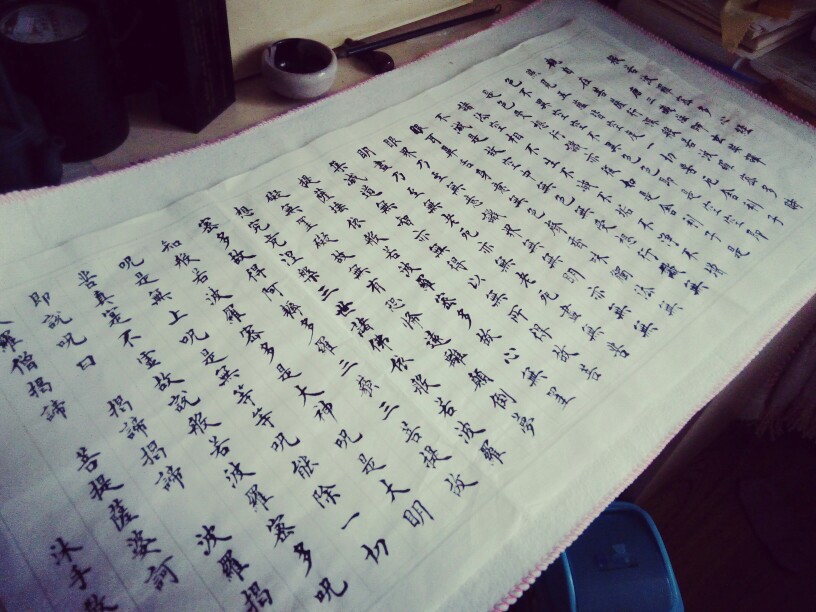 般若波羅蜜多心經
唐三藏法師玄奘譯
觀自在菩薩行深般若波羅蜜多時
照見五蘊皆空度一切苦厄舍利子
色不異空空不異色色即是空空即
是色受想行識亦復如是舍利子是
諸法空相不生不滅不垢不淨不增
不減是故空中無色無受想行識無
眼耳鼻舌身意無色聲香味觸法無
眼界乃至無意識界無無明亦無無
明盡乃至無老死亦無老死盡無苦
集滅道無智亦無得以無所得故菩
提薩埵依般若波羅蜜多故心無罣
礙無罣礙故無有恐怖遠離顛倒夢
想究竟涅槃三世諸佛依般若波羅
蜜多故得阿耨多羅三藐三菩提故
知般若波羅蜜多是大神呪是大明
呪是無上呪是無等等呪能除一切
苦真實不虛故說般若波羅蜜多呪
即說呪曰 揭諦揭諦 波羅揭
羅僧揭諦 菩提薩婆訶
沐手敬